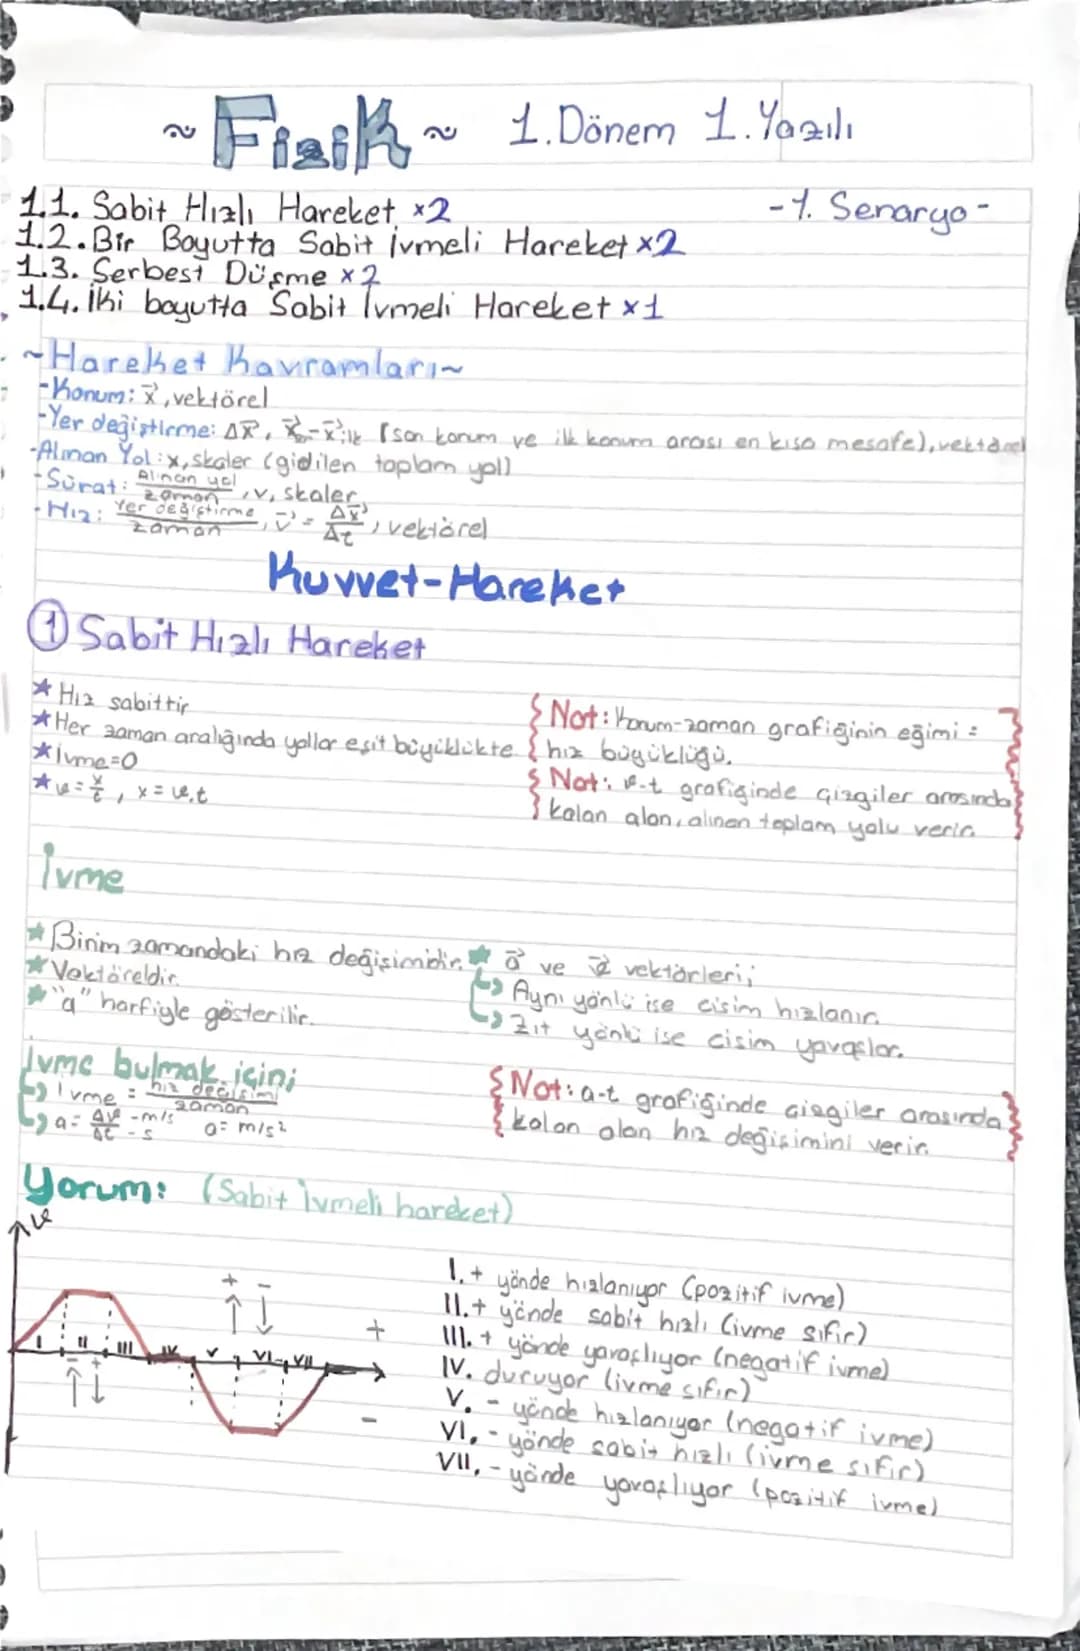 ~ Fizik ~ 1.Dönem 1.Yazılı
1.1. Sabit Hızlı Hareket x2
-1. Senaryo-
1.2. Bir Boyutta Sabit İvmeli Hareket x2
1.3. Serbest Düşme x2
1.4. İki boyutta Sabit İvmeli Hareket x1
~Hareket Kavramları~
-Konum: x⃗, vektörel
-Yer değiştirme: Δx⃗, x⃗son-x⃗ilk (son konum ve ilk konum arası en kısa mesafe), vektörel
-Alınan Yol: x, skaler (gidilen toplam yol)
-Sürat: Alınan yol / zaman, v, skaler
-Hız: Yer değiştirme / zaman, v⃗ = Δx⃗ / Δt, vektörel
Kuvvet-Hareket
1 Sabit Hızlı Hareket
★ Hız sabittir
★ Her zaman aralığında yollar eşit büyüklükte
★ İvme=0
★ v = x / t, x = v.t
Not: Konum-zaman grafiğinin eğimi =
hız büyüklüğü.
Not: v-t grafiğinde çizgiler arasında
kalan alan, alınan toplam yolu verir.
İvme
★ Birim zamandaki hız değişimidir.
★ Vektöreldir.
★ "a" harfiyle gösterilir.
★ a⃗ ve v⃗ vektörleri;
↳ Aynı yönlü ise cisim hızlanır.
↳ Zıt yönlü ise cisim yavaşlar.
İvme bulmak için;
↳ İvme = hız değişimi / zaman
↳ a = Δv / Δt - m/s - s a = m/s²
Not: a-t grafiğinde çizgiler arasında
kalan alan hız değişimini verir.
Yorum: (Sabit İvmeli hareket)
v
+ -
+
I II III IV V VI VII
- +
-
I. + yönde hızlanıyor (pozitif ivme)
II. + yönde sabit hızlı (ivme sıfır)
III. + yönde yavaşlıyor (negatif ivme)
IV. duruyor (ivme sıfır)
V. - yönde hızlanıyor (negatif ivme)
VI. - yönde sabit hızlı (ivme sıfır)
VII. - yönde yavaşlıyor (pozitif ivme)